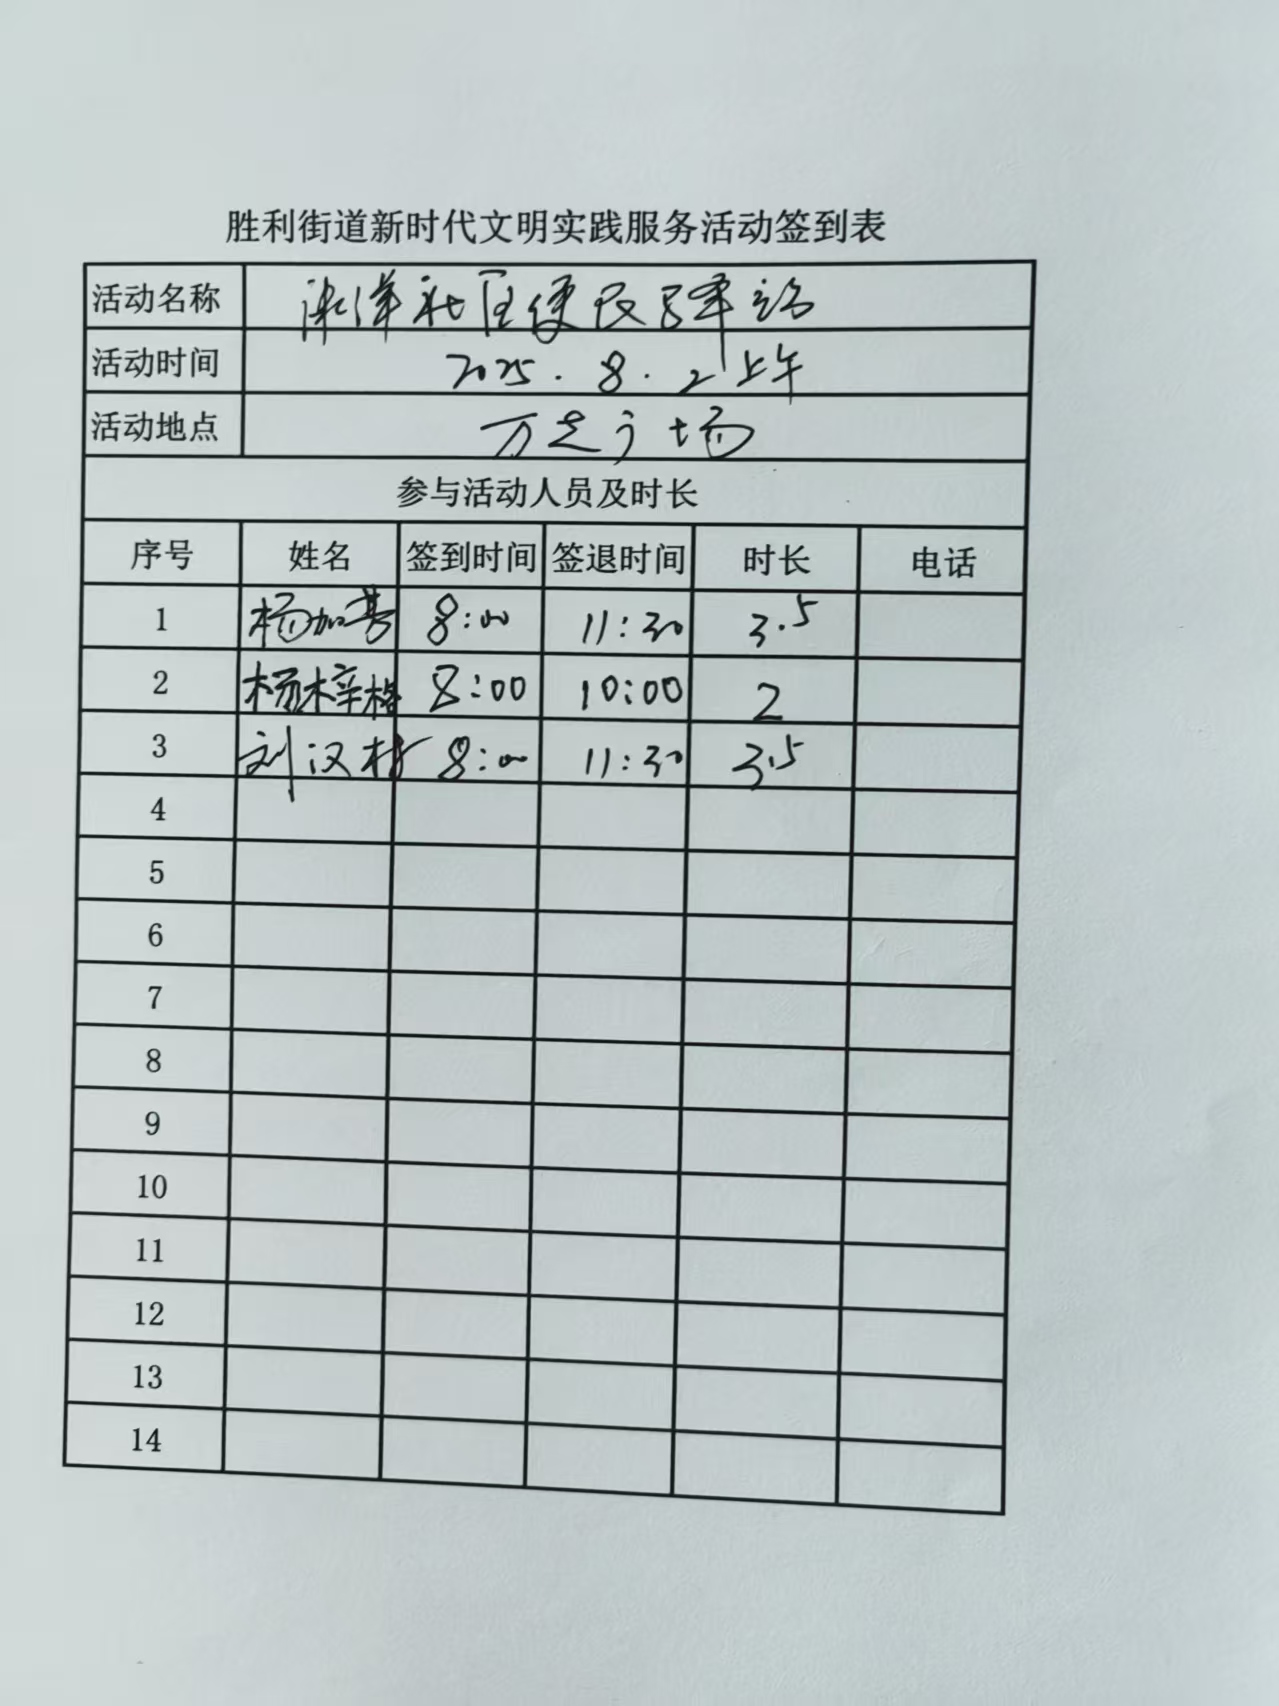 胜利街道新时代文明实践服务活动签到表
活动名称 洋社区便民驿站
活动时间 2025.8.2上午
活动地点 万达广场
参与活动人员及时长
序号 姓名 签到时间 签退时间 时长 电话
1 杨加 8:00 11:30 3.5
2 杨梓格 8:00 10:00 2
3 刘汉村 8:00 11:30 3.5
4
5
6
7
8
9
10
11
12
13
14